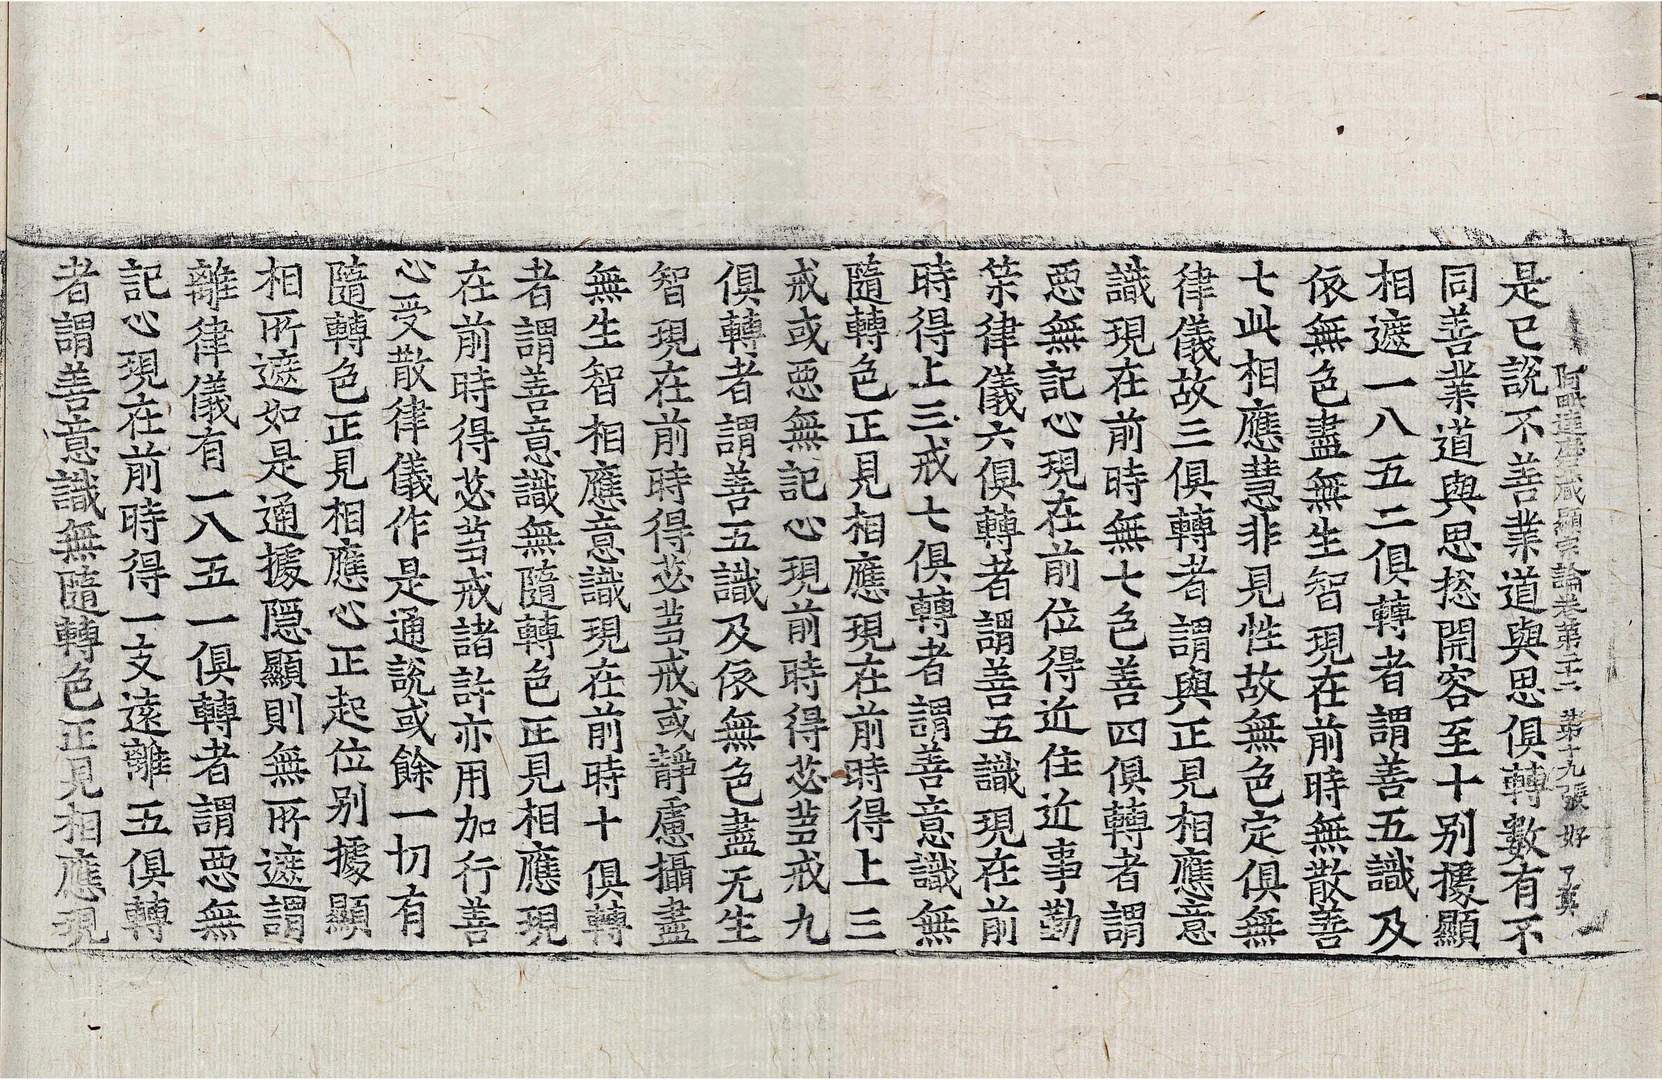 阿毗達磨藏顯宗論卷第二十二 第十九張 好 了英
是已說不善業道與思俱轉數有不
同善業道與思捴開容至十別據顯
相遮一八五二俱轉者謂善五識及
依無色盡無生智現在前時無散善
七此相應慧非見性故無色定俱無
律儀故三俱轉者謂與正見相應意
識現在前時無七色善四俱轉者謂
惡無記心現在前位得近住近事勤
策律儀六俱轉者謂善五識現在前
時得上三戒七俱轉者謂善意識無
隨轉色正見相應現在前時得上三
戒或惡無記心現前時得苾芻戒九
俱轉者謂善五識及依無色盡无生
智現在前時得苾芻戒或靜慮攝盡
無生智相應意識現在前時十俱轉
者謂善意識無隨轉色正見相應現
在前時得苾芻戒諸許亦用加行善
心受散律儀作是通說或餘一切有
隨轉色正見相應心正起位別據顯
相所遮如是通據隱顯則無所遮謂
離律儀有一八五一俱轉者謂惡無
記心現在前時得一支遠離五俱轉
者謂善意識無隨轉色正見相應現